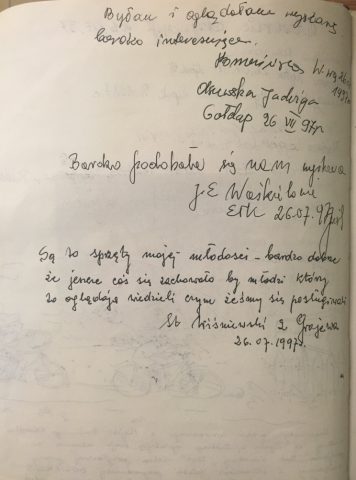 Byłam i oglądałam wystawę
bardzo interesująca.
Jadwiga
Gołdap 26 VII 97r
Bardzo podobała się nam wystawa
J.E
Ełk 26.07.97
Są to sprzęty mojej młodości – bardzo dobrze
że jeszcze coś się zachowało by młodzi którzy
to oglądają wiedzieli czym żeśmy się posługiwali
Wiśniewski z Grajewa
26.07.1997r.